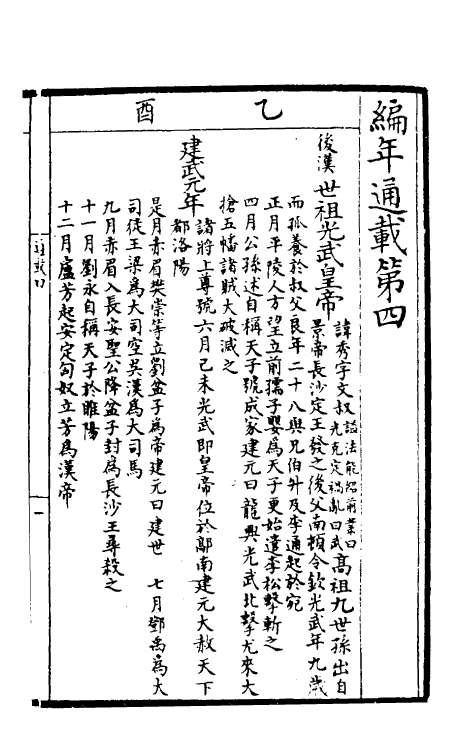 編年通載第四
乙酉
後漢世祖光武皇帝諱秀字文叔謚法能紹前業曰光克定禍亂曰武高祖九世孫出自
景帝長沙定王發之後父南頓令欽光武年九歲
而孤養於叔父良年二十八與兄伯升及李通起於宛
正月平陵人方望立前孺子嬰為天子更始遣李松擊斬之
四月公孫述自稱天子號成家建元曰龍興光武北擊尤來大
搶五幡諸賊大破滅之
建武元年諸將上尊號六月己未光武即皇帝位於鄗南建元大赦天下
都洛陽
是月赤眉樊崇等立劉盆子為帝建元曰建世 七月鄧禹為大
司徒王梁為大司空吳漢為大司馬
九月赤眉入長安聖公降盆子封為長沙王尋殺之
十一月劉永自稱天子於睢陽
十二月盧芳起安定匈奴立芳為漢帝
通載四
一